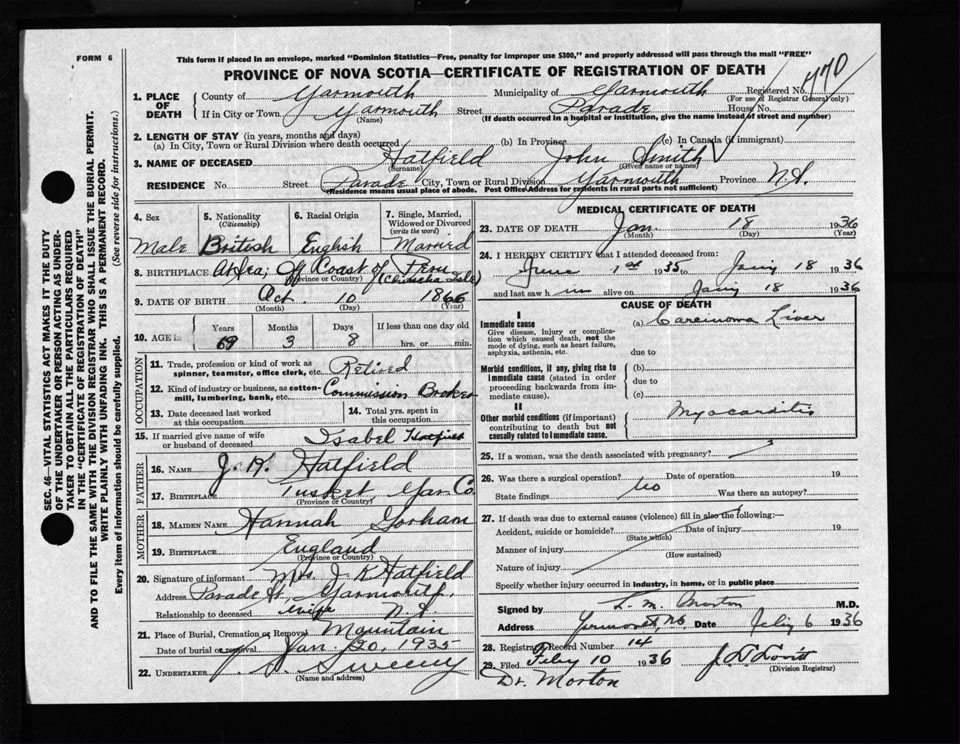 FORM 6
This form if placed in an envelope, marked "Dominion Statistics—Free, penalty for improper use $300," and properly addressed will pass through the mail "FREE"
PROVINCE OF NOVA SCOTIA—CERTIFICATE OF REGISTRATION OF DEATH
1. PLACE OF DEATH
County of Yarmouth Municipality of Yarmouth Registered No. 770
(For use of Registrar General only)
If in City or Town Yarmouth Street Parade House No.
(Name) (If death occurred in a hospital or institution, give the name instead of street and number)
2. LENGTH OF STAY (in years, months and days)
(a) In City, Town or Rural Division where death occurred (b) In Province (c) In Canada (if immigrant)
3. NAME OF DECEASED Hatfield John Smith
(Surname) (Given name or names)
RESIDENCE No. Street Parade City, Town or Rural Division Yarmouth Province N.S.
(Residence means usual place of abode. Post Office Address for residents in rural parts not sufficient)
4. Sex Male
5. Nationality (Citizenship) British
6. Racial Origin English
7. Single, Married, Widowed or Divorced (write the word) Married
8. BIRTHPLACE At Sea; Off Coast of Peru
(Province or Country) (Chincha Isle)
9. DATE OF BIRTH Oct. 10 1866
(Month) (Day) (Year)
10. AGE in Years 69 Months 3 Days 8 If less than one day old hrs. or min.
OCCUPATION
11. Trade, profession or kind of work as spinner, teamster, office clerk, etc. Retired
12. Kind of industry or business, as cotton-mill, lumbering, bank, etc. Commission Broker
13. Date deceased last worked at this occupation
14. Total yrs. spent in this occupation
15. If married give name of wife or husband of deceased Isabel Hatfield
FATHER
16. NAME J. K. Hatfield
17. BIRTHPLACE Tusket, Yar. Co.
(Province or Country)
MOTHER
18. MAIDEN NAME Hannah Gorham
19. BIRTHPLACE England
(Province or Country)
20. Signature of informant Mrs. J K Hatfield
Address Parade St. Yarmouth
Relationship to deceased wife N.S.
21. Place of Burial, Cremation or Removal Mountain
Date of burial or removal Jan 20, 1935
22. UNDERTAKER Sweeny
(Name and address)
MEDICAL CERTIFICATE OF DEATH
23. DATE OF DEATH Jan. 18 1936
(Month) (Day) (Year)
24. I HEREBY CERTIFY that I attended deceased from:
June 1st 1935 to Jany 18 1936
and last saw h im alive on Jany 18 1936
CAUSE OF DEATH
I
Immediate cause (a) Carcinoma Liver
Give disease, injury or complication which caused death, not the mode of dying, such as heart failure, asphyxia, asthenia, etc.
due to
Morbid conditions, if any, giving rise to immediate cause (stated in order proceeding backwards from immediate cause).
(b)
due to
(c)
II
Other morbid conditions (if important) contributing to death but not causally related to immediate cause.
Myocarditis
25. If a woman, was the death associated with pregnancy?
26. Was there a surgical operation? No Date of operation 19
State findings Was there an autopsy?
27. If death was due to external causes (violence) fill in also the following:—
Accident, suicide or homicide? Date of injury 19
(State which)
Manner of injury
(How sustained)
Nature of injury
Specify whether injury occurred in industry, in home, or in public place
Signed by L. M. Morton M.D.
Address Yarmouth, NS Date Feby 6 1936
28. Registrar's Record Number 14
29. Filed Feby 10 1936
(Division Registrar)
Dr. Morton
SEC. 46—VITAL STATISTICS ACT MAKES IT THE DUTY
OF THE UNDERTAKER OR PERSON ACTING AS UNDER-
TAKER TO OBTAIN ALL THE PARTICULARS REQUIRED
IN THE "CERTIFICATE OF REGISTRATION OF DEATH"
AND TO FILE THE SAME WITH THE DIVISION REGISTRAR WHO SHALL ISSUE THE BURIAL PERMIT.
WRITE PLAINLY WITH UNFADING INK. THIS IS A PERMANENT RECORD.
Every item of information should be carefully supplied. (See reverse side for instructions.)